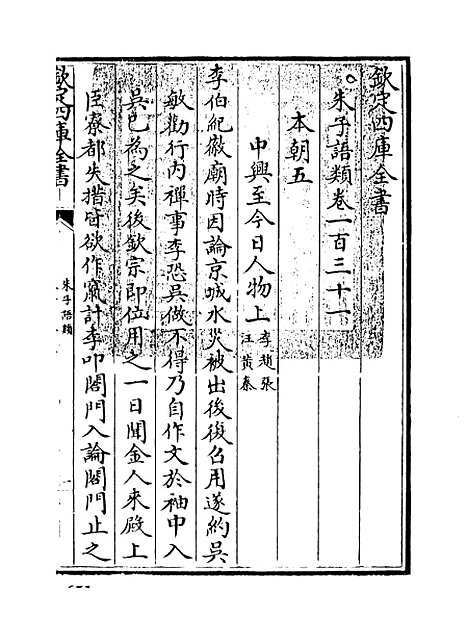 欽定四庫全書
朱子語類卷一百三十一
本朝五
中興至今日人物上李趙張汪黃秦
李伯紀徽廟時因論京城水災被出後復召用遂約吳
敏勸行內禪事李恐吳做不得乃自作文於袖中入
吳已為之矣後欽宗即位用之一日聞金人來殿上
臣寮都失措皆欲作竄計李叩閤門入論閤門止之
欽定四庫全書
朱子語類
一